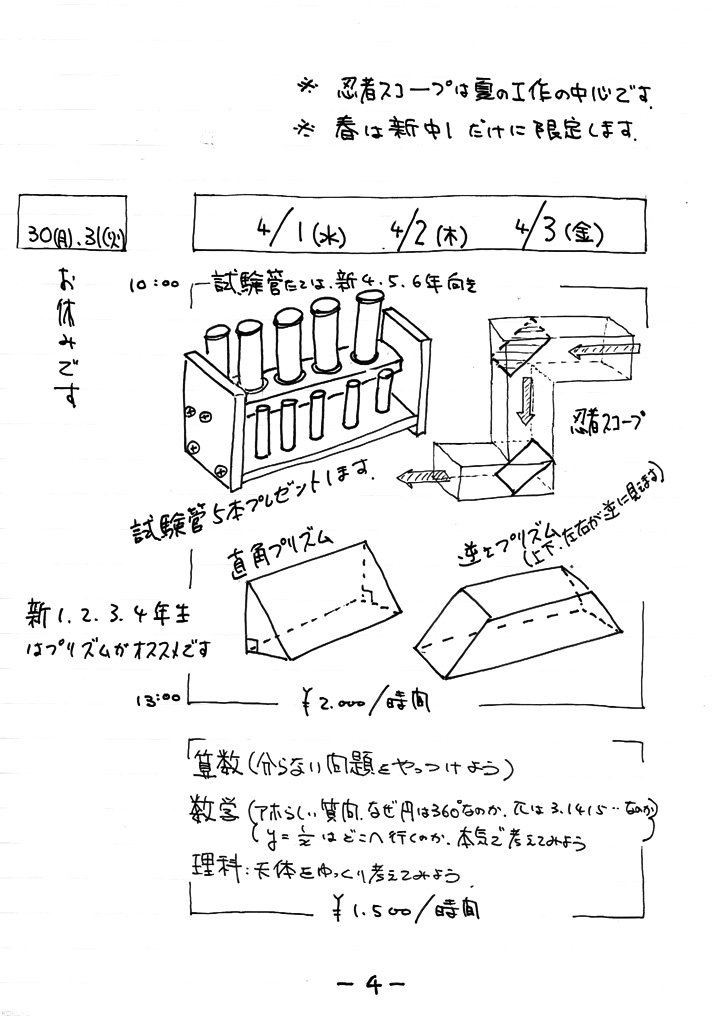 ※ 忍者スコープは夏の工作の中心です
※ 春は新中1だけに限定します.
30(月).31(火)
4/1(水) 4/2(木) 4/3(金)
お休みです
10:00
試験管たては.新4.5.6年向き
忍者スコープ
試験管5本プレゼントします.
直角プリズム
逆転プリズム
(上下.左右が逆に見えます)
新1.2.3.4年生
はプリズムがオススメです
13:00
¥2.000/時間
算数(分らない問題をやっつけよう)
数学(アホらしい質問.なぜ円は360°なのか.πは3.1415‥なのか)
(y=1/xはどこへ行くのか.本気で考えてみよう)
理科:天体をゆっくり考えてみよう
¥1.500/時間
-4-